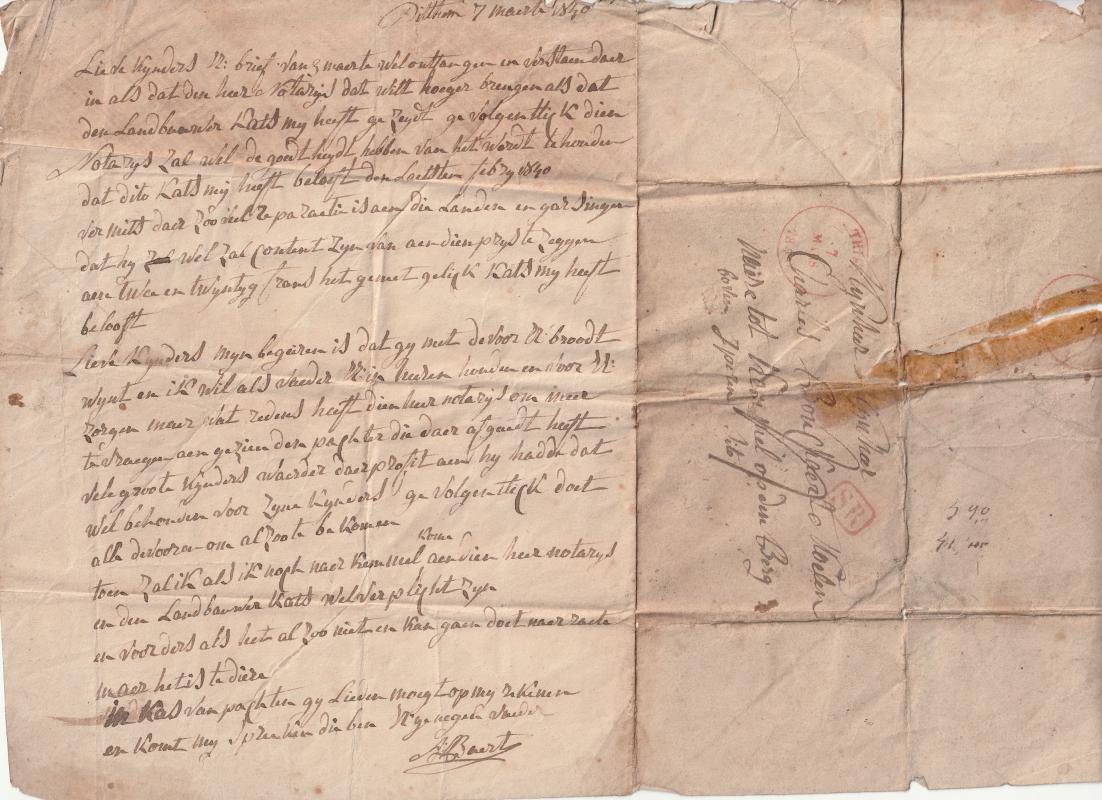 Pitthem 7 maerte 1840
Lieve Kynders U: brief van 5 maerte wel ontfangen en verstaen daer
in als dat den heer Notarys dat wilt hooger brengen als dat
den Landbauwer Kats my heeft gezeydt gevolgentlyk dien
Notarys zal wel de goedtheydt hebben van het wordt te houden
dat dito Kats my heeft belooft den Laetsten feb:ry 1840
vermits daer zoo veel reparaetie is aen die Landen en garsingen
dat hy zal wel zal Content zyn van aen dien prys te zeggen
aen twee en twyntyg frans het gemet gelyk Kats my heeft
belooft
Lieve Kynders myn begeiren is dat gy met devoor U: broodt
wynt en ik wil als vaeder U: in heeren houden en voor U:
zorgen maer wat redens heeft dien heer notarys om meer
te vraegen aen gezien den pachter die daer af gaedt heeft
vele groote Kynders waerder daer profit aen hy hadde dat
wel behouden voor zyne Kynders gevolgentlyck doet
alle devooren om alzoo te bekomen
kome
toen zal ik als ik noch naer Kemmel aen dien heer notarys
en den Landbauwer Kats wel verplight zyn
en voorders als het alzoo niet en kan gaen doet naer raede
maer het is te diere
in Kas van pachten gy Lieden moegt op my rekenen
en komt my spreeken die ben U genegen vaeder
Baert
Mynheer
Charles
Moelen
op den Berg
boven Iperen
SR